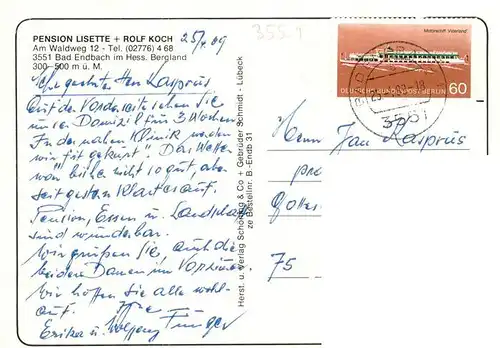 PENSION LISETTE + ROLF KOCH
Am Waldweg 12 - Tel. (02776) 4 68
3551 Bad Endbach im Hess. Bergland
300-500 m ü. M.
355.1
Kasprus
Auf der Vorderseite sehen Sie
unser Domizil für 3 Wochen.
In der nahen Klinik werden
wir "fit gekurt". Das Wetter
war bisher nicht so gut, aber
seit gestern klart es auf.
Pension, Essen u. Landschaft
sind wunderbar.
Wir grüßen Sie, auch die
beiden Damen im Vorzimmer
Wir hoffen Sie alle wohl-
auf. Ihre
Erika u. Wolfgang
Herst. u. Verlag Schöning & Co + Gebrüder Schmidt - Lübeck
ze Bestellnr. B.-Endb 31
DEUTSCHE BUNDESPOST BERLIN 60
3551
Herrn Jan Kasprus
Gottes
75